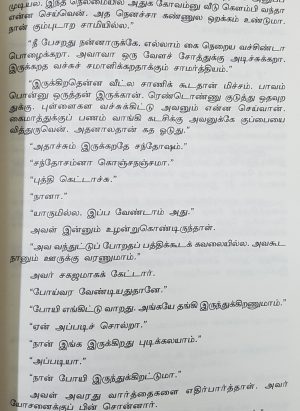 முடியல. இந்த நெலமையில அதுக கோவம்னு வீடு கெளம்பி வந்தா
என்ன செய்வேன். அத நெனச்சா கண்ணுல ஒறக்கம் உண்டுமா.
நான் கும்புடாற சாமியில்ல."
"நீ பேசறது நன்னாருக்கே. எல்லாம் கை நெறைய வச்சிண்டா
பொழைக்கறா. அவாவா ஒரு வேளச் சோத்துக்கு அடிச்சுக்கறா.
இருக்கறத வச்சுச் சமாளிக்கறதாக்கும் சாமார்த்தியம்."
"இருக்கிறதென்ன வீட்ல சாணிக் கூடதான் மிச்சம். பாவம்
பொன்னு ஒருத்தன் இருக்கான். ரெண்டொண்ணு குடுத்து ஒதவுற
துக்கு. புள்ளைகள வச்சுக்கிட்டு அவனும் என்ன செய்வான்.
கைமாத்துக்குப் பணம் வாங்கி கடசிக்கு அவனுக்கே குப்பையை
வித்துருவென். அதனாலதான் கத ஓடுது."
"அதாச்சும் இருக்கறதே சந்தோஷம்."
"சந்தோசம்னா கொஞ்சநஞ்சமா."
"புத்தி கெட்டாச்சு."
"நானா."
"யாருமில்ல. இப்ப வேண்டாம் அது."
அவள் இன்னும் உழன்றுகொண்டிருந்தாள்.
"அவ வந்துட்டுப் போறதப் பத்திக்கூடக் கவலையில்ல. அவகூட
நானும் ஊருக்கு வரணுமாம்."
அவர் சகஜமாகக் கேட்டார்.
"போய்வர வேண்டியதுதானே."
"போயி எங்கிட்டு வாறது. அங்கயே தங்கி இருந்துக்கிறணுமாம்."
"ஏன் அப்படிச் சொல்றா."
"நான் இங்க இருக்கிறது புடிக்கலயாம்."
"அப்படியா."
"நான் போயி இருந்துக்கிறட்டுமா."
அவள் அவரது வார்த்தைகளை எதிர்பார்த்தாள். அவர்
யோசனைக்குப் பின் சொன்னார்.